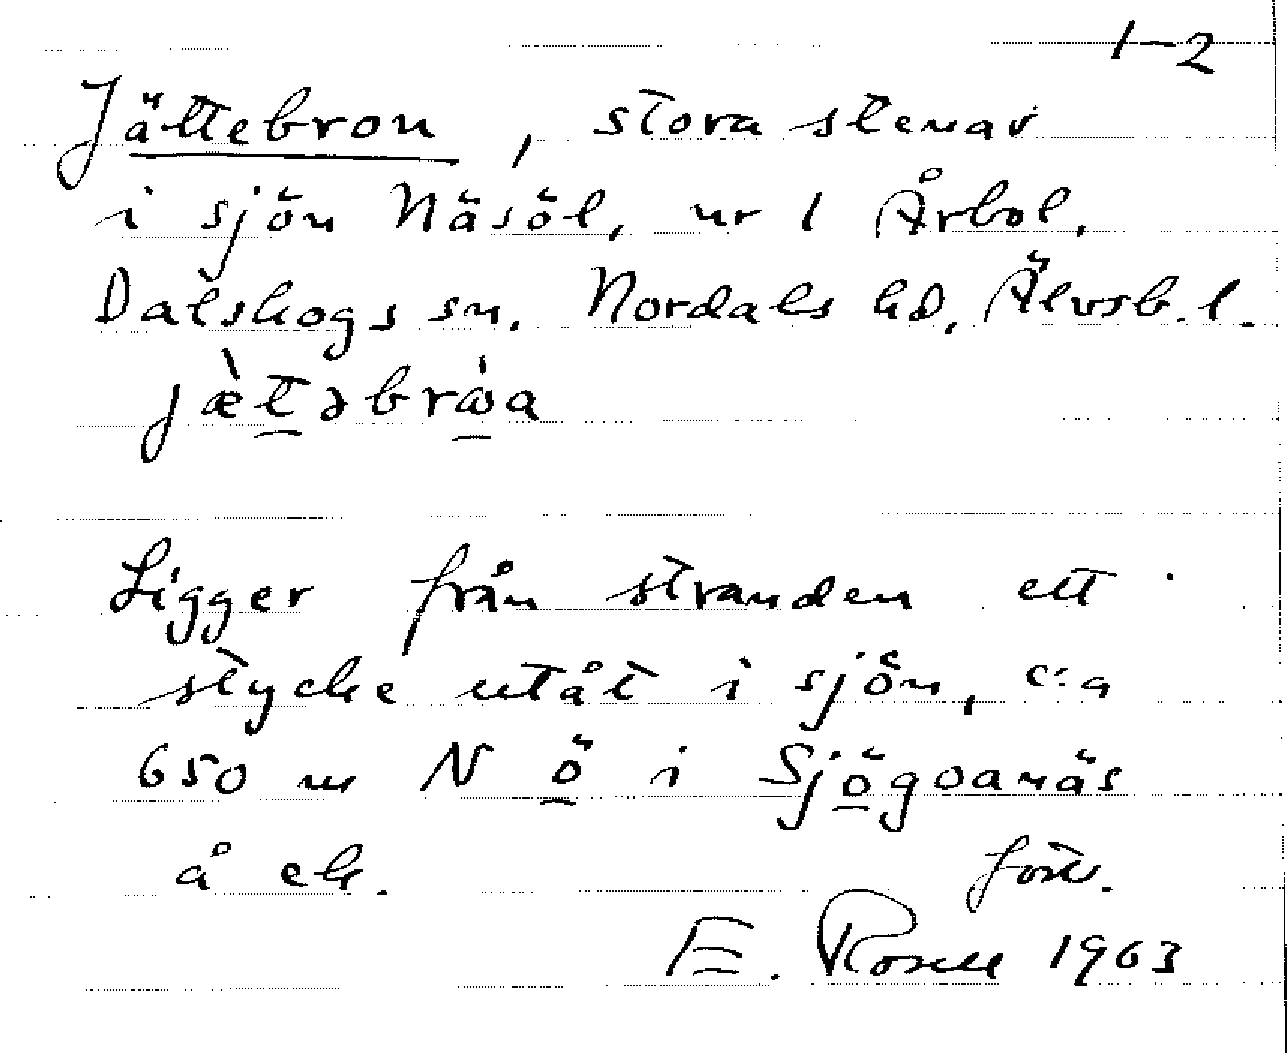 1-2
Jättebron, stora stenar
i sjön Näsöl, nr 1 Årbol,
Dalskogs sn. Nordals hd, Älvsb. l.
jæ̀t̲əbrώ̲a
Ligger från stranden ett
stycke utåt i sjön, c:a
650 m N ö̲ i Sjö̲goanäs
å ek. forts.
E. Rosell 1963